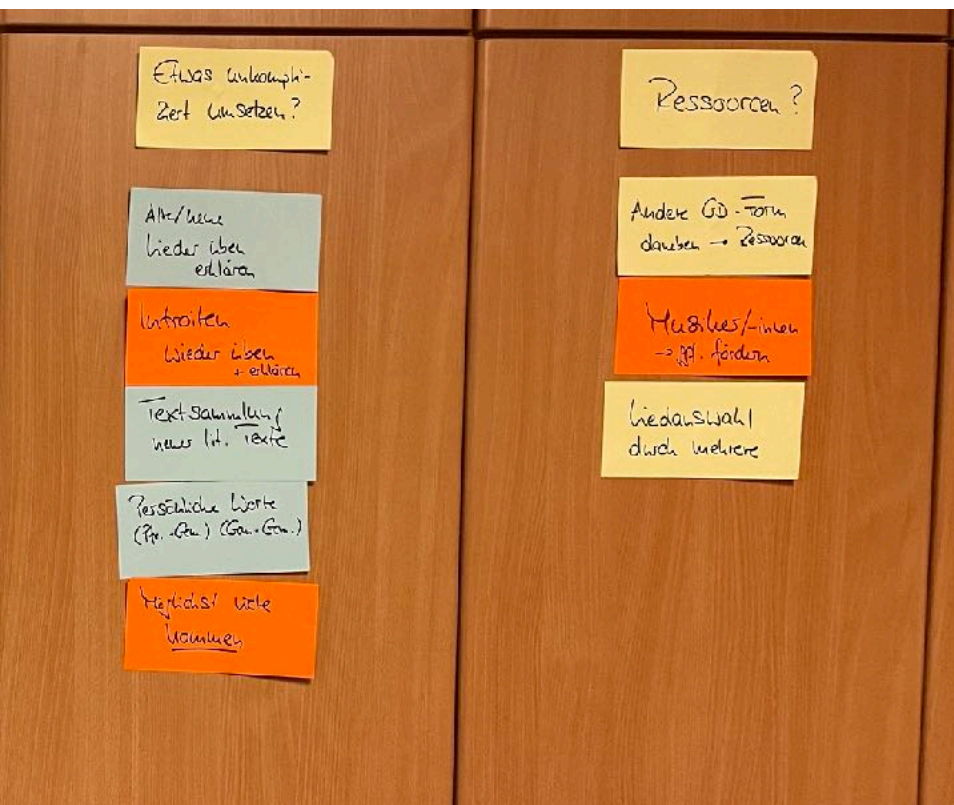 Etwas unkompli-
ziert umsetzen?
Alte/neue
Lieder üben
erklären
Introiten
wieder üben
+ erklären
Textsammlung
neuer lit. Texte
Persönliche Worte
(Pfr.-Gem.) (Gem.-Gem.)
Möglichst viele
kommen
Ressourcen?
Andere GD-Form
daneben → Ressourcen
Musiker/-innen
→ ggf. fördern
Liedauswahl
durch mehrere